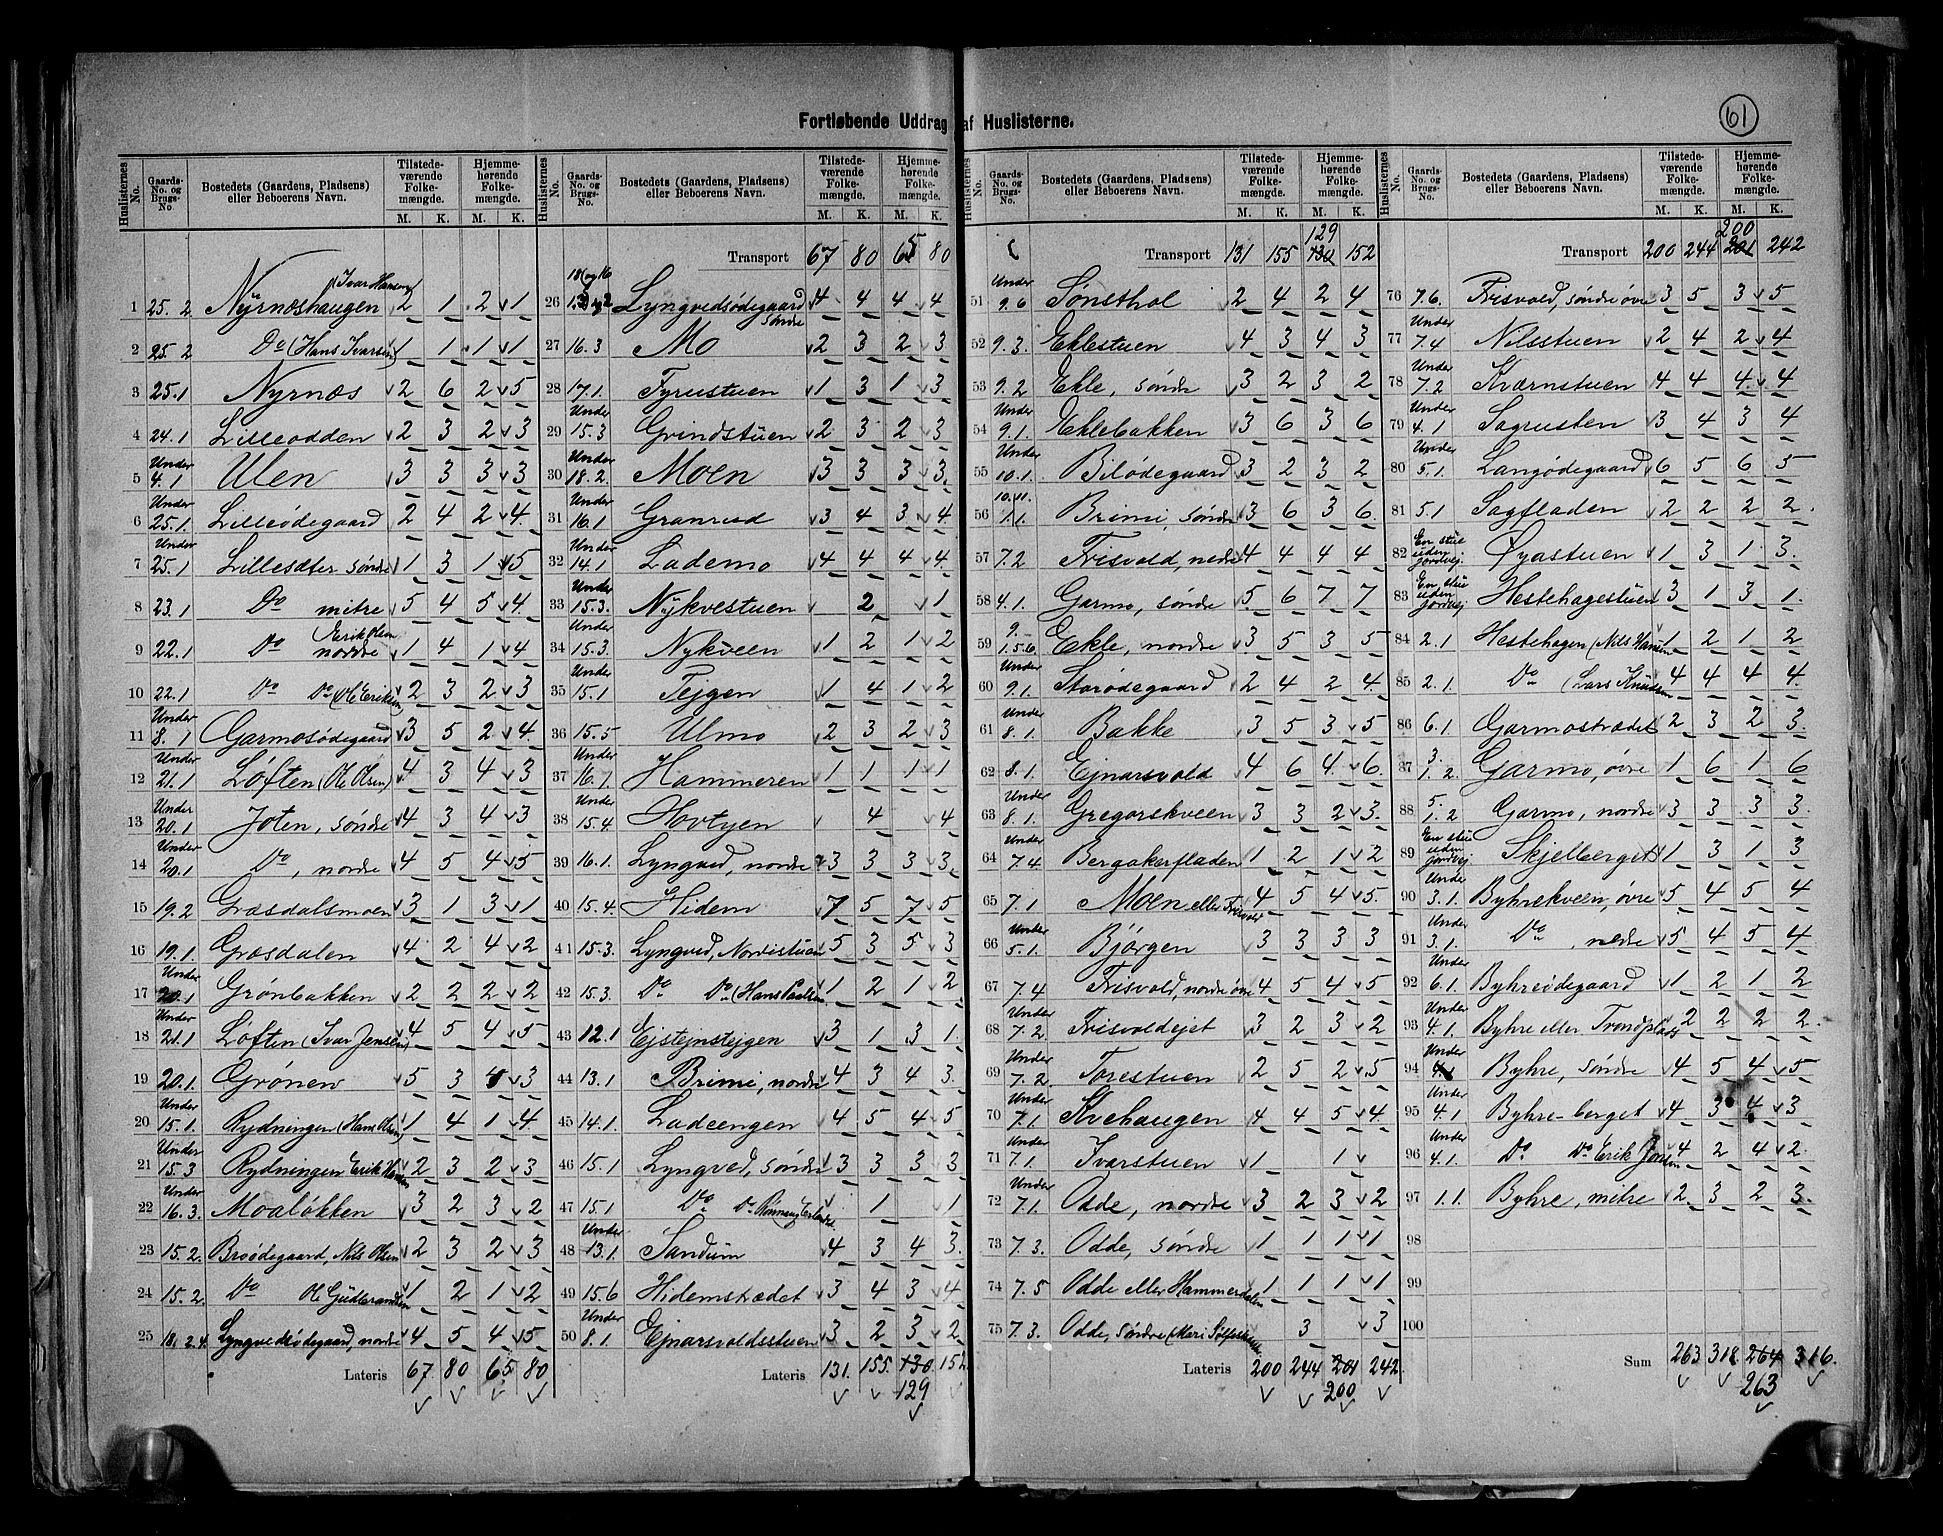 Fortløbende Uddrag af Huslisterne.
61
Huslisternes No. Gaards-No. og Brugs-No. Bostedets (Gaardens, Pladsens) eller Beboerens Navn. Tilstedeværende Folkemængde. M. K. Hjemmehørende Folkemængde. M. K.
1 25. 2 Nyrnæshaugen (Ivar Hansen) 2 1 2 1
2 25. 2 Do (Hans Ivarsen) 1 1 1 1
3 25.1 Nyrnæs 2 6 2 5
4 24.1 Lilleodden 2 3 2 3
5 Under 4.1 Ulen 3 3 3 3
6 Under 25.1. Lilleødegaard 2 4 2 4.
7 Under 25.1 Lillesæter søndre 1 3 1 5
8 23.1 Do mitre 5 4 5 4.
9 22.1 Do nordre Erik Olsen 1 4 1 4
10 22.1 Do Do (Ole Eriksen) 2 3 2 3
11 Under 8.1 Garmosødegaard 3 5 2 4.
12 Under 21.1 Løften (Ole Olsen) 4 3 4 3
13 Under 20.1 Joten, søndre 4 3 4 3
14 Under 20.1 Do, nordre 4 5 4 5
15 19.2 Græsdalsmoen 3 1 3 1
16 19.1 Græsdalen 4 2 4 2
17 Under 20.1 Grønbakken 2 2 2 2
18 Under 21.1 Løften (Ivar Jensen) 4 5 4 5
19 20.1. Grønen 5 3 4 3
20 Under 15.1. Rydningen (Hans Olsen) 1 4 1 4
21 Under 15.3 Rydningen Erik Hansen 2 3 2 3
22 Under 16.3. Moaløkken 3 2 3 2
23 15.2. Broødegaard, Nils Olsen 2 3 2 3
24 15.2. Do Ole Gudbrandsen 1 2 1 2
25 18. 2.4. Lyngvedsødegaard, nordre 4 5 4 5
Lateris 67 80 65 80
Huslisternes No. Gaards-No. og Brugs-No. Bostedets (Gaardens, Pladsens) eller Beboerens Navn. Tilstedeværende Folkemængde. M. K. Hjemmehørende Folkemængde. M. K.
Transport 67 80 65 80
26 Lyngvedsødegaard søndre 4 4 4 4
27 16.3 Mo 2 3 2 3
28 17.1. Fyrustuen 1 3 1 3
29 Under 15.3 Grindstuen 2 3 2 3
30 Under 18.2. Moen 3 3 3 3.
31 Under 16.1 Granrud 3 4 3 4.
32 Under 14.1 Lademo 4 4 4 4.
33 Under 15.3. Nykvestuen 2 1
34 Under 15.3. Nykveen 1 2 1 2
35 Under 15.1 Tejgen 1 4 1 2
36 15.5 Ulmo 2 3 2 3
37 Under 16.1 Hammeren 1 1 1 1
38 Under 15.4. Hovtyen 4 4
39 16.1. Lyngved, nordre 3 3 3 3.
40 15.4. Hidem 7 5 7 5
41 15.3. Lyngved, Nordistuen 5 3 5 3
42 15.3. Do Do (Hans Paulsen 1 2 1 2
43 12.1 Ejstejnstejgen 3 1 3 1.
44 13.1 Brimi, nordre 4 3 4 3.
45 14.1. Ladeengen 4 5 4 5
46 15.1 Lyngved, søndre 3 3 3 3
47 15.1 Do Do 1 1
48 Under 13.1. Sandum 4 3 4 3.
49 15.6 Hidemstrædet 3 4 3 4
50 Under 8.1. Ejnarsvoldsstuen 3 2 3 2
Lateris 131. 155. 130 152
129
Huslisternes No. Gaards-No. og Brugs-No. Bostedets (Gaardens, Pladsens) eller Beboerens Navn. Tilstedeværende Folkemængde. M. K. Hjemmehørende Folkemængde. M. K.
129
Transport 131 155 130 152
51 Under 9.6 Sønsthol 2 4 2 4
52 9.3. Eklestuen 4 3 4 3
53 9.2 Ekle, søndre 3 2 3 2
54 Under 9.1. Eklebakken 3 6 3 6
55 Under 10.1. Bilødegaard 3 2 3 2
56 10.11. 1.1. Brimi, søndre 3 6 3 6.
57 7.2 Frisvold, nedre 4 4 4 4
58 4.1. Garmo, søndre 5 6 7 7
59 9. 1.5.6. Ekle, nordre 3 5 3 5
60 Under 9.1. Storødegaard 2 4 2 4.
61 Under 8.1. Bakke 3 5 3 5
62 8.1. Ejnarsvold 4 6 4 6.
63 Under 8.1 Gregorskveen 3 3 2 3.
64 Under 7.4. Bergakerfladen 1 2 1 2
65 7.1 Moen eller Frisvold 4 5 4 5.
66 Under 5.1. Bjørgen 3 3 3 3
67 7.4 Frisvold, nordre øvre 4 5 4 5
68 Under 7.2. Frisvoldejet 3 2 3 2
69 Under 7.2. Torestuen 2 5 2 5
70 Under 7.1. Kvehaugen 4 4 5 4
71 Under 7.1. Ivarstuen 1 1
72 Under 7.1. Odde, nordre 3 2 3 2
73 7.3. Odde, søndre 1 1 1 1
74 7.5 Odde eller Hammerdalen 1 1 1 1
75 7.3. Odde, søndre (Mari 3 3
Lateris 200 244 201 242
200
Huslisternes No. Gaards-No. og Brugs-No. Bostedets (Gaardens, Pladsens) eller Beboerens Navn. Tilstedeværende Folkemængde. M. K. Hjemmehørende Folkemængde. M. K.
200
Transport 200 244 201 242
76 7.6. Frisvold, søndre øvre 3 5 3 5
77 Under 7.4 Nilsstuen 2 4 2 4
78 Under 7.2 Kværnstuen 4 4 4 4
79 Under 4.1 Sagrusten 3 4 3 4
80 Under 5.1. Langødegaard 6 5 6 5
81 5.1 Sagfladen 2 2 2 2.
82 En stue uden jordvej. Øyastuen 1 3 1 3.
83 En stue uden jordvej Hestehagestuen 3 1 3 1.
84 2.1 Hestehagen (Nils Hansen 1 2 1 2
85 2.1. Do (Lars Knudsen 4 4 4 4
86 6.1 Garmostrædet 2 3 2 3.
87 3. 1.2. Garmo, øvre 1 6 1 6
88 5. 1.2 Garmo, nordre 3 3 3 3.
89 En stue uden jordvej Skjelberget 1 3 1 3
90 Under 3.1. Byhrekveen, øvre 5 4 5 4
91 Under 3.1. Do, nedre 5 4 5 4
92 Under 6.1 Byhreødegaard 1 2 1 2
93 Under 4.1. Byhre eller Trondplads 2 2 2 2.
94 Under Byhre, søndre 4 5 4 5
95 Under 4.1 Byhre-berget 4 3 4 3
96 Under 4.1. Do Do Erik Jonsen 4 2 4 2.
97 1.1. Byhre, mitre 2 3 2 3.
98
99
100
Sum 263 318 264 316.
263